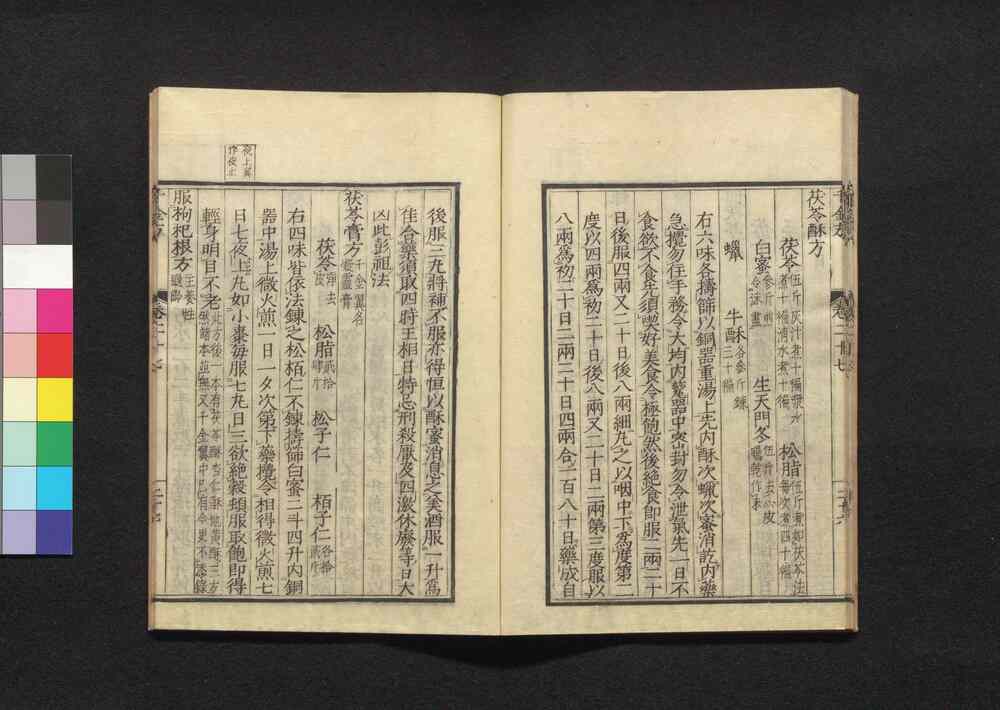 茯苓酥方
茯苓 伍斤灰汁煮十徧漿水煮十徧清水煮十徧 松脂 伍斤煮如茯苓法每次煮四十徧
白蜜 參斗煎令沫盡 生天門冬 伍斤去心皮曝乾作末
蠟 牛酥 各參斤鍊三十徧
右六味各擣篩以銅器重湯上先內酥次蠟次蜜消訖內藥
急攪勿住手務令大均內甕器中密封勿令泄氣先一日不
食欲不食先須喫好美食令極飽然後絕食即服二兩二十
日後服四兩又二十日後八兩細丸之以咽中下爲度第二
度以四兩爲初二十日後八兩又二十日二兩第三度服以
八兩爲初二十日二兩二十日四兩合一百八十日藥成自
後服三丸將補不服亦得恒以酥蜜消息之美酒服一升爲
佳合藥須取四時王相日特忌刑殺厭及四激休廢等日大
凶此彭祖法
茯苓膏方 千金翼名凝靈膏
茯苓 淨去皮 松脂 貳拾肆斤 松子仁 栢子仁 各拾貳斤
右四味皆依法鍊之松栢仁不鍊擣篩白蜜二斗四升內銅
器中湯上微火煎一日一夕次第下藥攪令相得微火煎七
日七夜止丸如小棗每服七丸日三欲絕穀頓服取飽即得
輕身明目不老 此方後一本有茯苓酥杏仁酥地黃酥三方然諸本並無又千金翼中已有今更不添錄
服枸杞根方 主養性遐齡
千金方 卷二十七